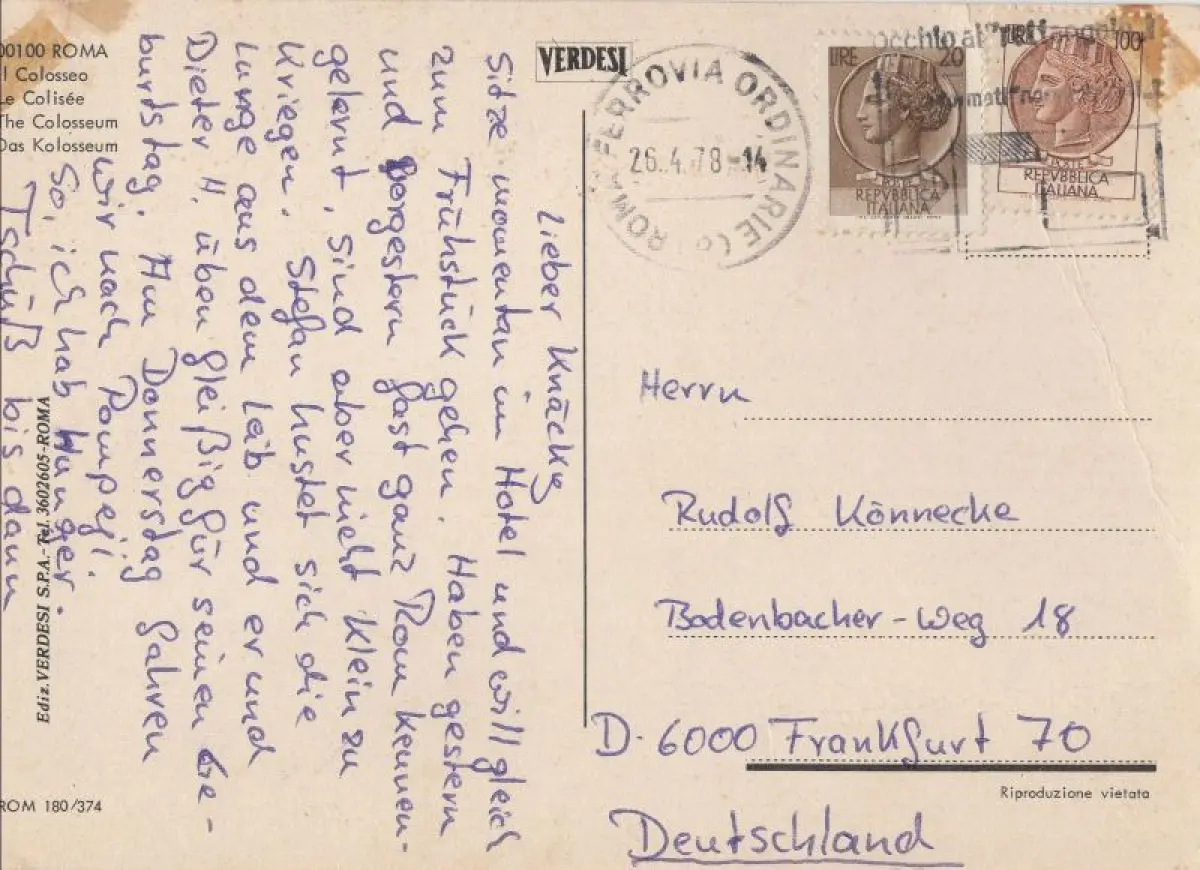 00100 ROMA
Il Colosseo
Le Colisée
The Colosseum
Das Kolosseum
VERDESI
Lieber Knäcky
Sitze momentan im Hotel und will gleich
zum Frühstück gehen. Haben gestern
und Vorgestern fast ganz Rom kennen-
gelernt, sind aber nicht klein zu
kriegen. Stefan hustet sich die
Lunge aus dem Leib und er und
Dieter H. üben fleißig für seinen Ge-
burtstag. Am Donnerstag fahren
wir nach Pompeji.
So, ich hab Hunger.
Tschüß bis dann
Ediz. VERDESI S.P.A. - Tel. 3602605 - ROMA
ROM 180/374
ROMA FERROVIA ORDINARIE
26.4.78-14
occhio al
LIRE 20
REPVBBLICA
ITALIANA
LIRE 100
REPVBBLICA
ITALIANA
Herrn
Rudolf Könnecke
Bodenbacher-Weg 18
D-6000 Frankfurt 70
Deutschland
Riproduzione vietata